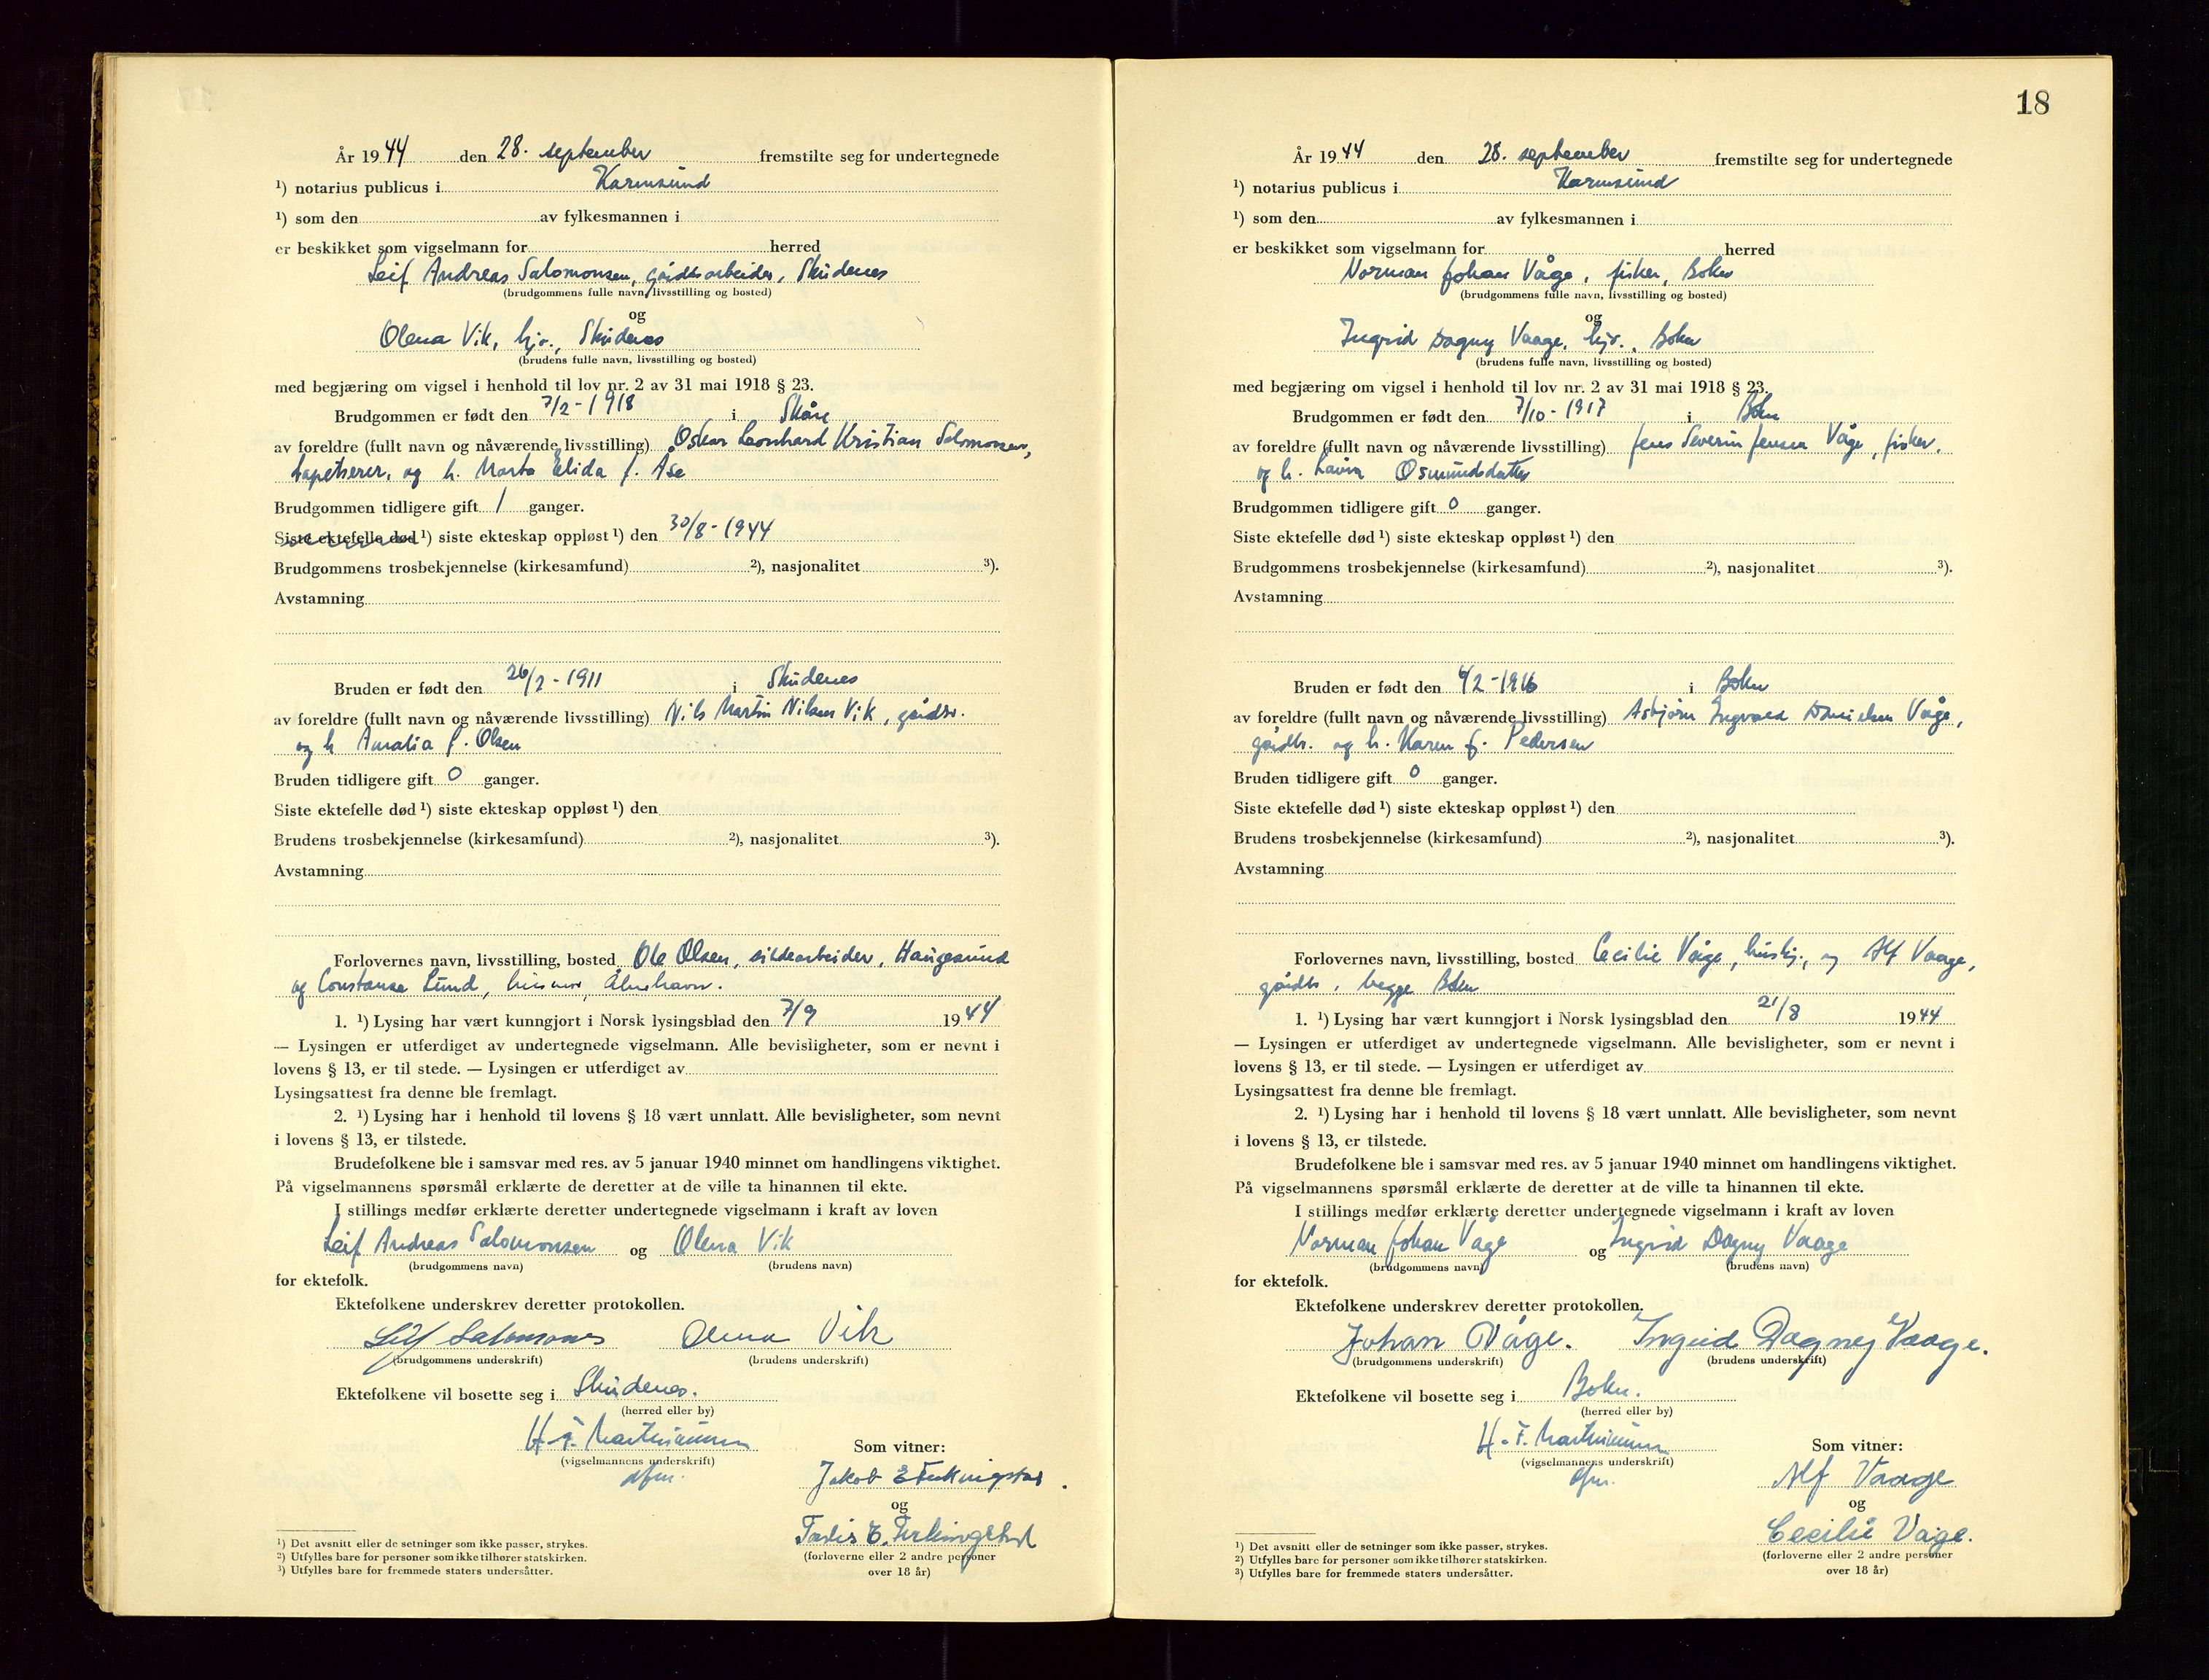 År 19 44 den 28. september fremstilte seg for undertegnede
¹) notarius publicus i Karmsund
¹) som den av fylkesmannen i
er beskikket som vigselmann for herred
Leif Andreas Salomonsen, gårdsarbeider, Skudenes
(brudgommens fulle navn, livsstilling og bosted)
og
Olena Vik, hjv., Skudenes
(brudens fulle navn, livsstilling og bosted)
med begjæring om vigsel i henhold til lov nr. 2 av 31 mai 1918 § 23.
Brudgommen er født den 7/2-1918 i Skåre
av foreldre (fullt navn og nåværende livsstilling) Oskar Leonhard Kristian Salomonsen,
tapetserer, og h. Marta Elida f. Åse
Brudgommen tidligere gift 1 ganger.
Siste ektefelle død ¹) siste ekteskap oppløst ¹) den 30/8-1944
Brudgommens trosbekjennelse (kirkesamfund) ²), nasjonalitet ³).
Avstamning
Bruden er født den 26/2-1911 i Skudenes
av foreldre (fullt navn og nåværende livsstilling) Nils Martin Nilsen Vik, gårdbr.
og h Amalia f. Olsen
Bruden tidligere gift 0 ganger.
Siste ektefelle død ¹) siste ekteskap oppløst ¹) den
Brudens trosbekjennelse (kirkesamfund) ²), nasjonalitet ³).
Avstamning
Forlovernes navn, livsstilling, bosted Ole Olsen, sildearbeider, Haugesund
og Constanse Lund, husmor,
1. ¹) Lysing har vært kunngjort i Norsk lysingsblad den 7/9 19 44
— Lysingen er utferdiget av undertegnede vigselmann. Alle bevisligheter, som er nevnt i
lovens § 13, er til stede. — Lysingen er utferdiget av
Lysingsattest fra denne ble fremlagt.
2. ¹) Lysing har i henhold til lovens § 18 vært unnlatt. Alle bevisligheter, som nevnt
i lovens § 13, er tilstede.
Brudefolkene ble i samsvar med res. av 5 januar 1940 minnet om handlingens viktighet.
På vigselmannens spørsmål erklærte de deretter at de ville ta hinannen til ekte.
I stillings medfør erklærte deretter undertegnede vigselmann i kraft av loven
Leif Andreas Salomonsen og Olena Vik
(brudgommens navn) (brudens navn)
for ektefolk.
Ektefolkene underskrev deretter protokollen.
Leif Salomonsen Olena Vik
(brudgommens underskrift) (brudens underskrift)
Ektefolkene vil bosette seg i Skudenes.
(herred eller by)
H. F.
(vigselmannens underskrift)
Som vitner:
Jakob E Ferkingstad.
og
E. Ferkingstad
(forloverne eller 2 andre personer
over 18 år)
¹) Det avsnitt eller de setninger som ikke passer, strykes.
²) Utfylles bare for personer som ikke tilhører statskirken.
³) Utfylles bare for fremmede staters undersåtter.
18
År 19 44 den 28. september fremstilte seg for undertegnede
¹) notarius publicus i Karmsund
¹) som den av fylkesmannen i
er beskikket som vigselmann for herred
Norman Johan Våge, fisker, Bokn
(brudgommens fulle navn, livsstilling og bosted)
og
Ingrid Dagny Vaage, hjv., Bokn
(brudens fulle navn, livsstilling og bosted)
med begjæring om vigsel i henhold til lov nr. 2 av 31 mai 1918 § 23.
Brudgommen er født den 7/10-1917 i Bokn
av foreldre (fullt navn og nåværende livsstilling) Jens Severin Jensen Våge, fisker,
og h. Lavin Osmundsdatter
Brudgommen tidligere gift 0 ganger.
Siste ektefelle død ¹) siste ekteskap oppløst ¹) den
Brudgommens trosbekjennelse (kirkesamfund) ²), nasjonalitet ³).
Avstamning
Bruden er født den 4/2-1916 i Bokn
av foreldre (fullt navn og nåværende livsstilling) Asbjørn Ingvald Danielsen Våge,
gårdbr. og h. Karen f. Pedersen
Bruden tidligere gift 0 ganger.
Siste ektefelle død ¹) siste ekteskap oppløst ¹) den
Brudens trosbekjennelse (kirkesamfund) ²), nasjonalitet ³).
Avstamning
Forlovernes navn, livsstilling, bosted Cecilie Våge, hushj., og Alf Vaage,
gårdbr, begge Bokn
1. ¹) Lysing har vært kunngjort i Norsk lysingsblad den 21/8 19 44
— Lysingen er utferdiget av undertegnede vigselmann. Alle bevisligheter, som er nevnt i
lovens § 13, er til stede. — Lysingen er utferdiget av
Lysingsattest fra denne ble fremlagt.
2. ¹) Lysing har i henhold til lovens § 18 vært unnlatt. Alle bevisligheter, som nevnt
i lovens § 13, er tilstede.
Brudefolkene ble i samsvar med res. av 5 januar 1940 minnet om handlingens viktighet.
På vigselmannens spørsmål erklærte de deretter at de ville ta hinannen til ekte.
I stillings medfør erklærte deretter undertegnede vigselmann i kraft av loven
Norman Johan Våge og Ingrid Dagny Vaage
(brudgommens navn) (brudens navn)
for ektefolk.
Ektefolkene underskrev deretter protokollen.
Johan Våge. Ingrid Dagny Vaage.
(brudgommens underskrift) (brudens underskrift)
Ektefolkene vil bosette seg i Bokn.
(herred eller by)
H. F.
(vigselmannens underskrift)
Som vitner:
Alf Vaage
og
Cecilie Våge.
(forloverne eller 2 andre personer
over 18 år)
¹) Det avsnitt eller de setninger som ikke passer, strykes.
²) Utfylles bare for personer som ikke tilhører statskirken.
³) Utfylles bare for fremmede staters undersåtter.